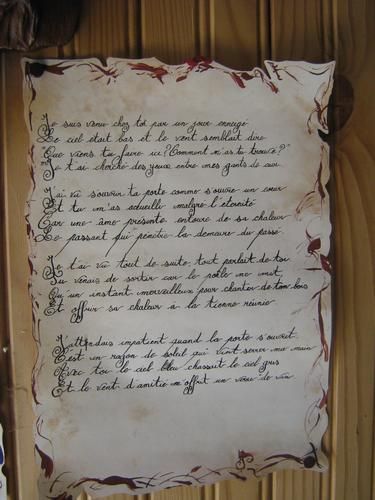 Je suis venu chez toi par un jour enneigé
Le ciel était bas et le vent semblait dire
Que viens tu faire ici? Comment m'as tu trouvé?"
Je t'ai cherché des yeux entre mes gants de cuir

J'ai vu s'ouvrir ta porte comme s'ouvre un cœur
Et tu m'as accueilli malgré l'éternité
Car une âme présente entoure de sa chaleur
Le passant qui pénètre la demeure du passé.

Je t'ai vu tout de suite, tout parlait de toi
Tu venais de sortir car le poêle me mit
Ou un instant merveilleux pour chanter de ton bois
Et offrir sa chaleur à la tienne réunie

J'attendais impatient quand la porte s'ouvrit
C'est un rayon de soleil qui vint serrer ma main
Avec toi le ciel bleu chassait le ciel gris
Et le vent d'amitié m'offrit un verre de vin